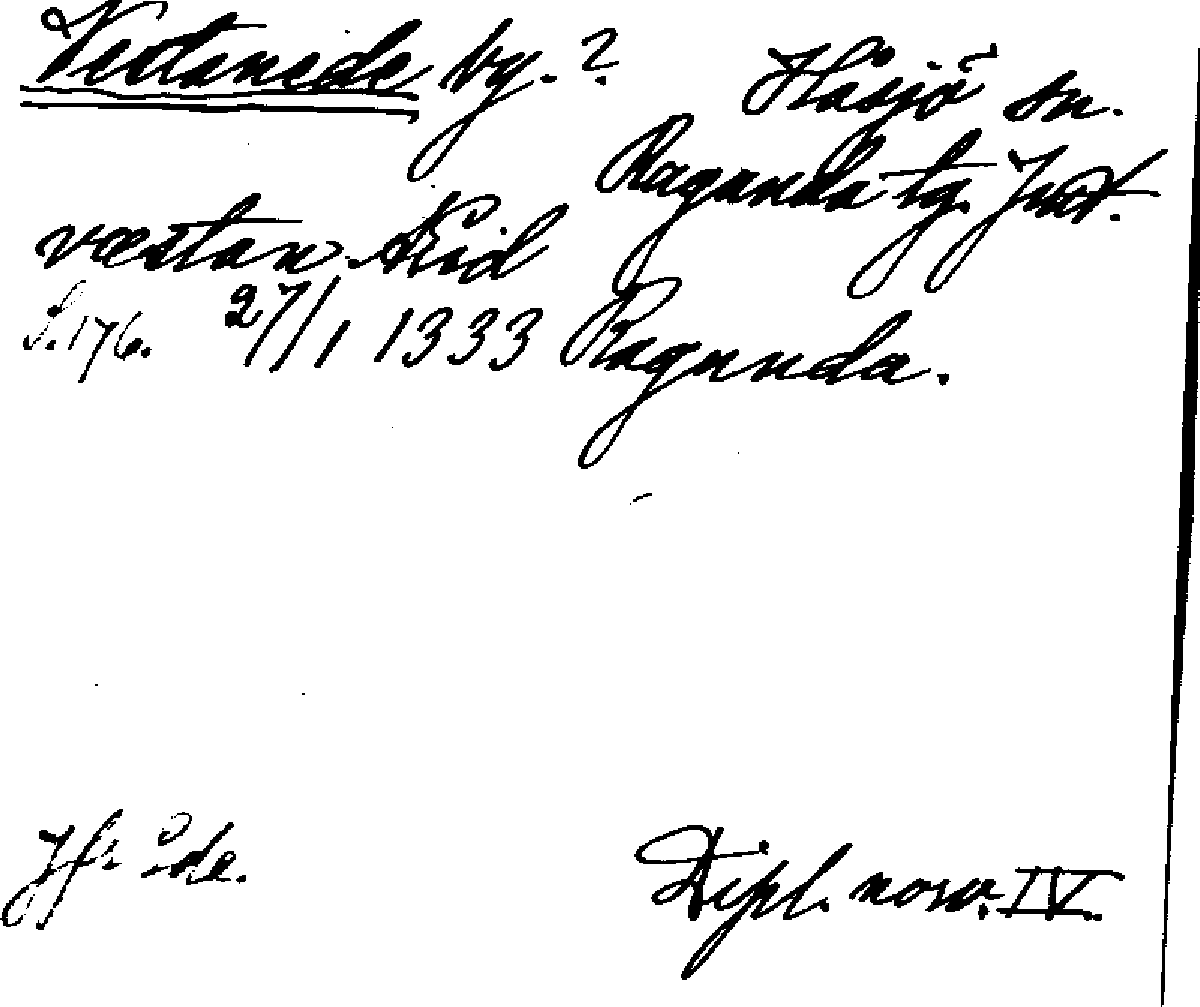 Vestanede by. ?
Håsjö sn.
Ragunda tg. Jmt.
væstan. Æid
S. 176. 27/1 1333 Ragunda.
Jfr Ede.
Dipl. norv. IV.